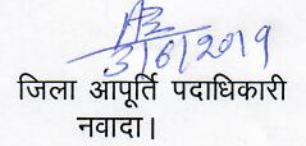 3/6/2019
जिला आपूर्ति पदाधिकारी
नवादा।